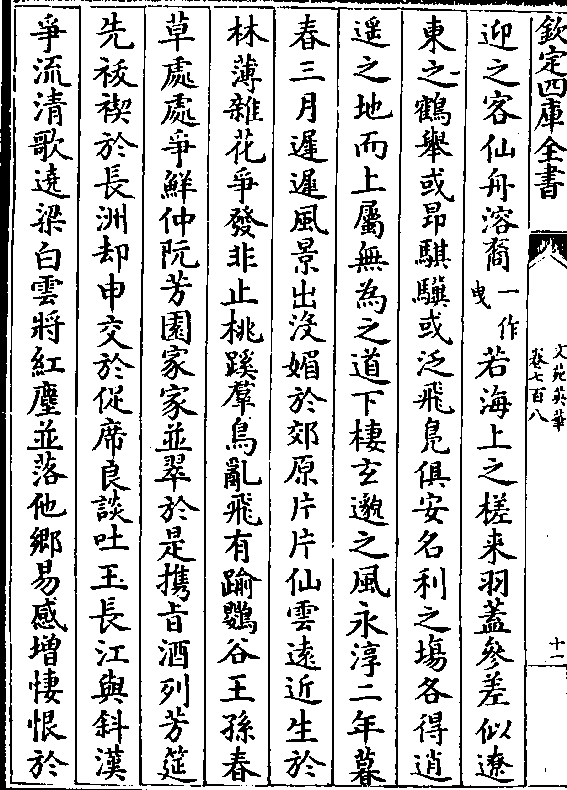 欽定四庫全書
文苑英華
卷七百八
十一
迎之客仙舟溶裔一作曳若海上之槎来羽蓋參差似遼
東之鶴舉或昂騏驥或泛飛鳧俱安名利之塲各得逍
遥之地而上屬無為之道下棲玄邈之風永淳二年暮
春三月遲遲風景出沒媚於郊原片片仙雲遠近生於
林薄雜花爭發非止桃蹊羣鳥亂飛有踰鸎谷王孫春
草處處爭鮮仲阮芳園家家並翠於是攜旨酒列芳筵
先祓禊於長洲却申交於促席良談吐玉長江與斜漢
爭流清歌遶梁白雲將紅塵並落他鄉易感增悽恨於